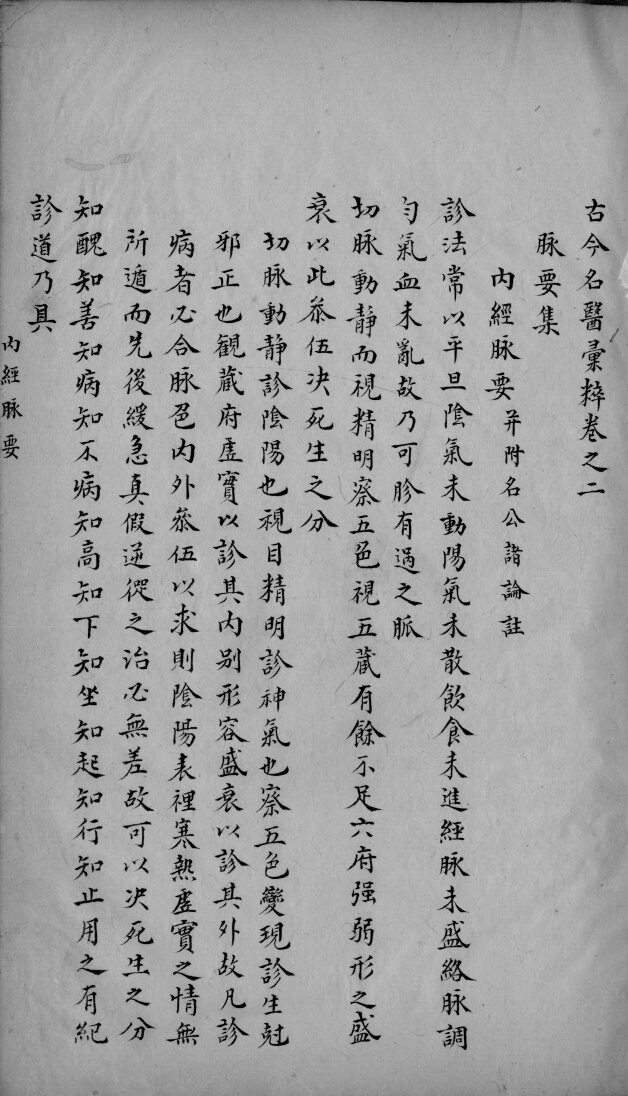 古今名醫彙粹卷之二
脉要集
内經脉要并附名公諸論註
診法常以平旦陰氣未動陽氣未散飲食未進經脉未盛絡脉調
匀氣血未亂故乃可胗有過之脈
切脉動靜而視精明察五色視五藏有餘不足六府强弱形之盛
衰以此叅伍决死生之分
切脉動靜診陰陽也視目精明診神氣也察五色變現診生尅
邪正也観藏府虛實以診其内别形容盛衰以診其外故凡診
病者必合脉色内外叅伍以求則陰陽表裡寒熱虛實之情無
所遁而先後緩急真假逆從之治必無差故可以决死生之分
知醜知善知病知不病知高知下知坐知起知行知止用之有紀
診道乃具
内經脉要